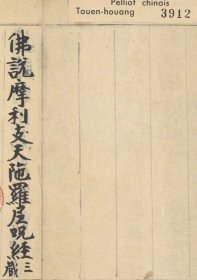 Pelliot chinois
Touen-houang 3912
佛說摩利支天陁羅尼呪經 三藏